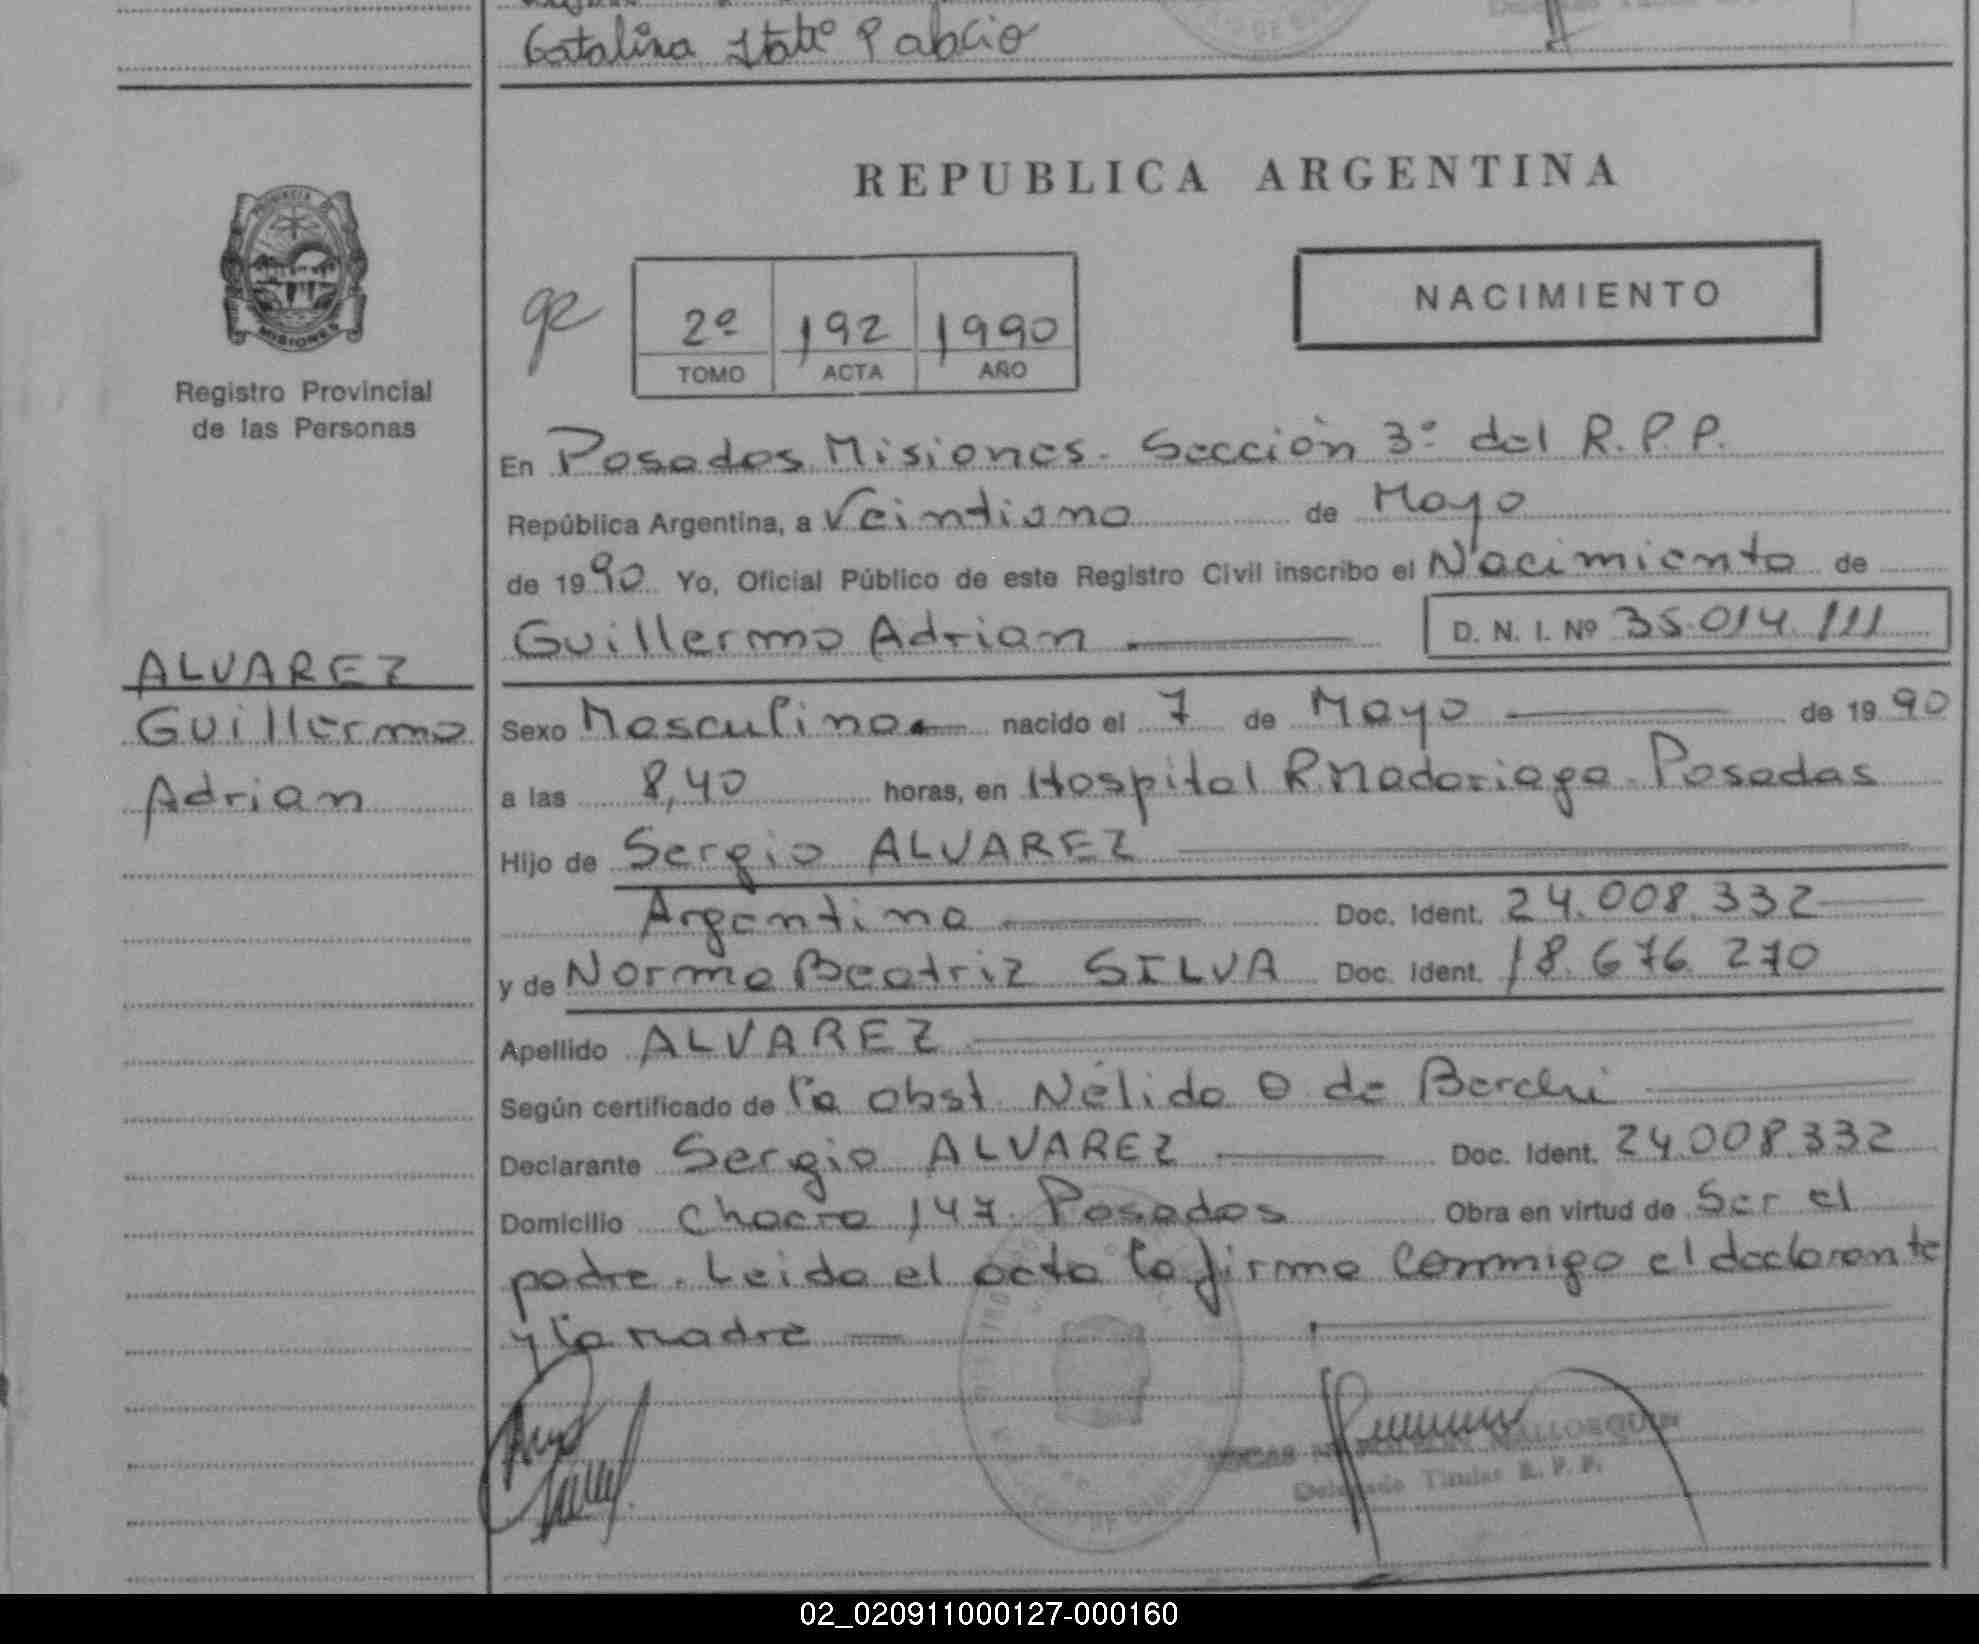 Catalina Itatí Palacio
REPUBLICA ARGENTINA
PROVINCIA
MISIONES
Registro Provincial
de las Personas
NACIMIENTO
2º 192 1990
TOMO ACTA AÑO
En Posadas Misiones. Sección 3º del R.P.P.
República Argentina, a Veintiuno de Mayo
de 1990 Yo, Oficial Público de este Registro Civil inscribo el Nacimiento de
Guillermo Adrian D. N. I. Nº 35.014.111
ALVAREZ
Guillermo
Adrian
Sexo Masculino nacido el 7 de Mayo de 1990
a las 8,40 horas, en Hospital R.Madariaga Posadas
Hijo de Sergio ALVAREZ
Argentino Doc. Ident. 24.008.332
y de Norma Beatriz SILVA Doc. Ident. 18.676.270
Apellido ALVAREZ
Según certificado de la obst Nélida O de Berchi
Declarante Sergio ALVAREZ Doc. Ident. 24.008.332
Domicilio Chacra 147 Posadas Obra en virtud de Ser el
padre. Leida el acta la firma conmigo el declarante
y la madre
MALLORQUIN
Delegado Titular R. P. P.
02_020911000127-000160